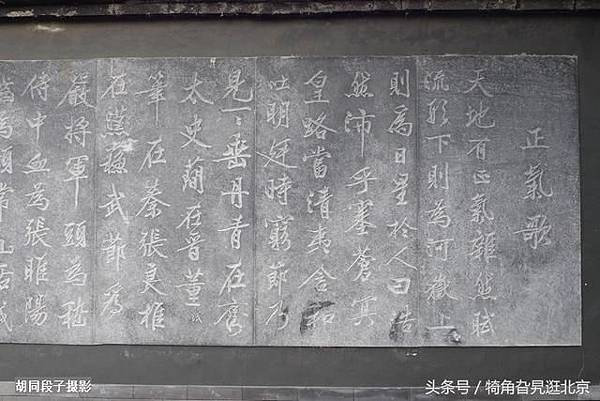 正氣歌
天地有正氣雜然賦
流形下則為河嶽上
則為日星於人曰浩
然沛乎塞蒼冥
皇路當清夷含和
吐明廷時窮節乃
見一一垂丹青在齊
太史簡在晉董狐
筆在秦張良椎
在漢蘇武節為
嚴將軍頭為嵇
侍中血為張睢陽
齒為顏常山舌或
胡同段子摄影
头条号／犄角旮旯逛北京